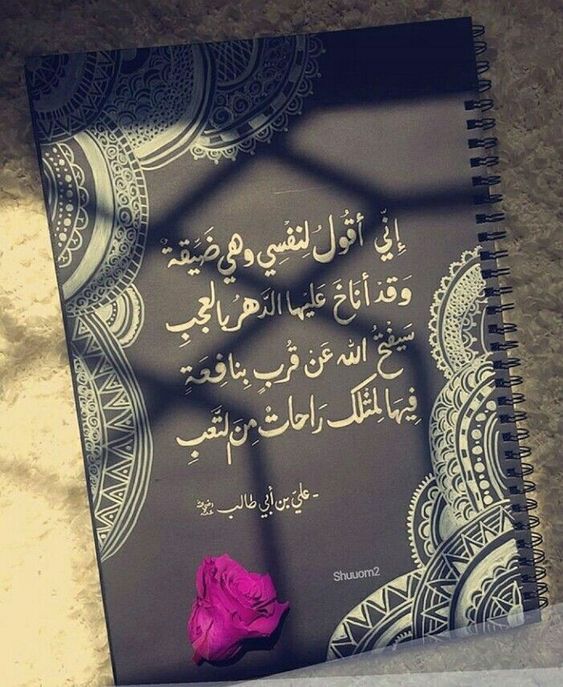 إنّي أقُولُ لِنفْسِي وهي ضَيّقةٌ
وَقَدْ أنَاخَ عَليْها الدَهرُ بالعجبِ
سَيفْتحُ الله عَن قُربٍ بِنافِعَةٍ
فِيهَا لمِثْلك رَاحَاتْ مِنَ لتَّعَبِ
- علي بن أبي طالب
Shuuom2